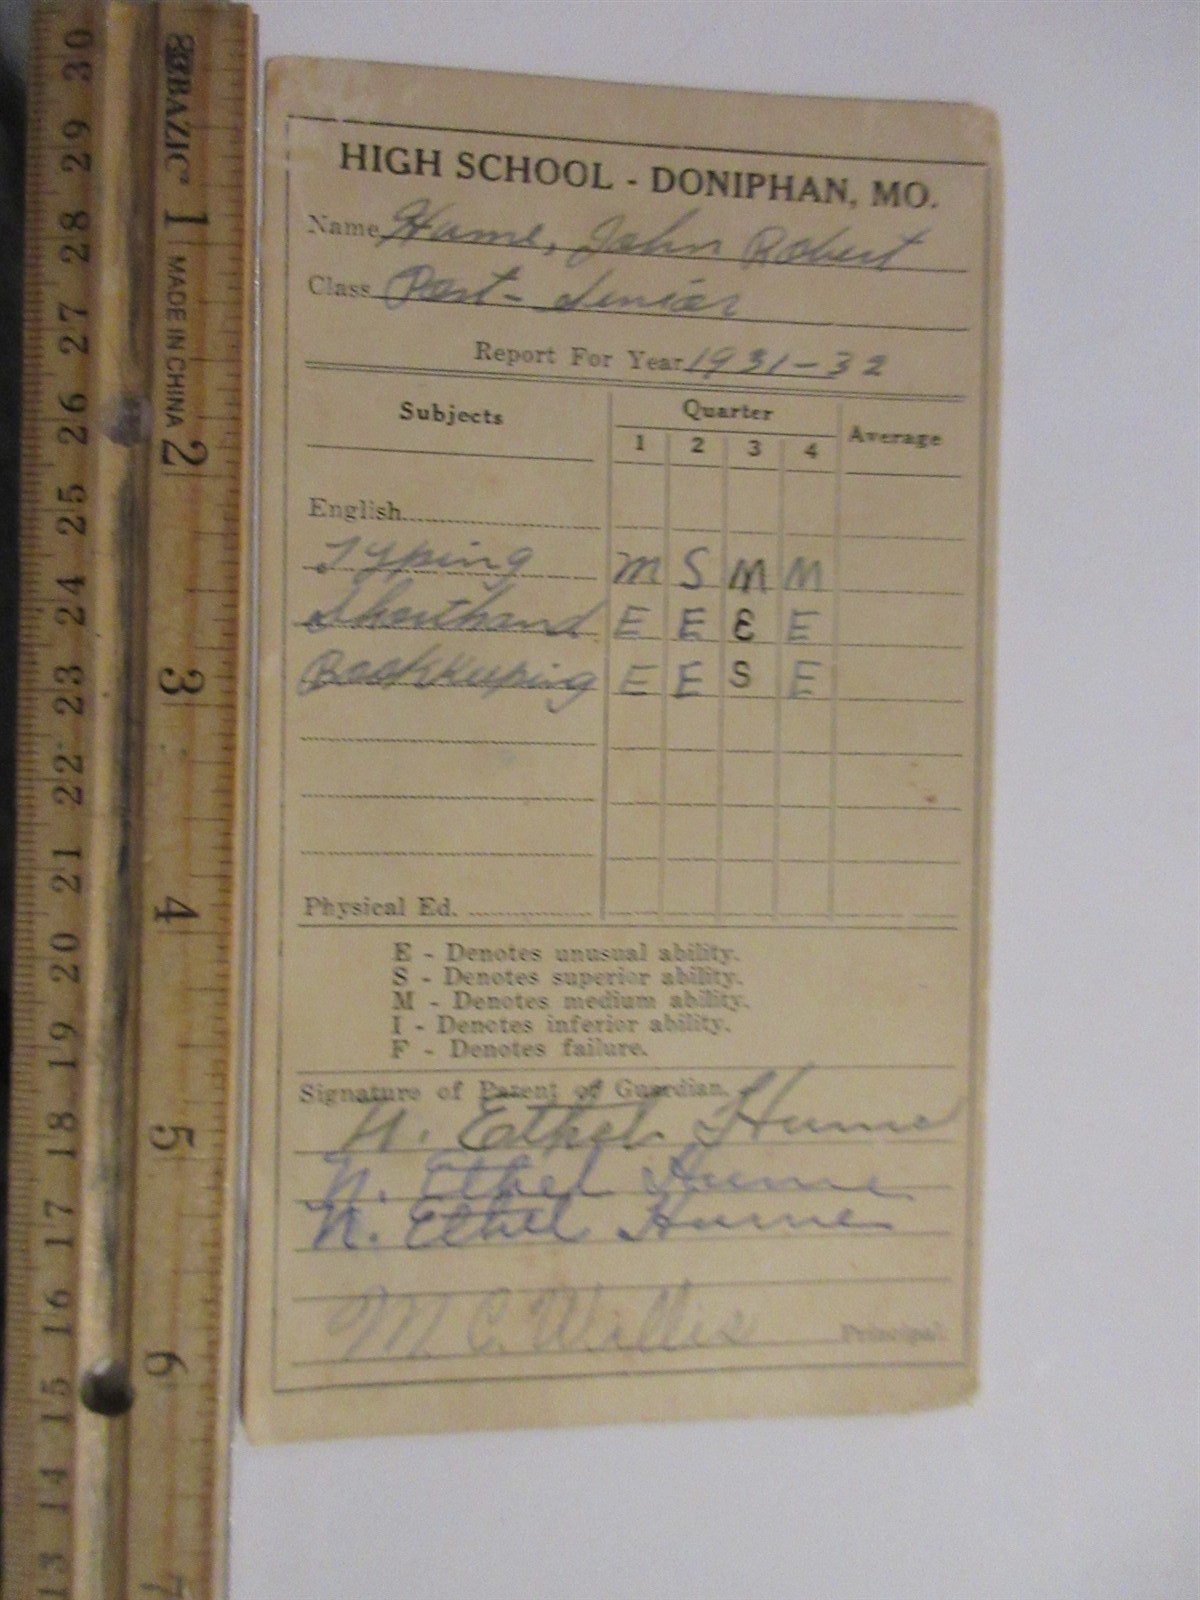 HIGH SCHOOL - DONIPHAN, MO.
Name Hume, John Robert
Class Post-Senior
Report For Year 1931-32
Subjects Quarter Average
1 2 3 4
English
Typing M S M M
Shorthand E E E E
Bookkeeping E E S E
Physical Ed.
E - Denotes unusual ability.
S - Denotes superior ability.
M - Denotes medium ability.
I - Denotes inferior ability.
F - Denotes failure.
Signature of Parent or Guardian.
N. Ethel Hume
N. Ethel Hume
N. Ethel Hume
M. C. Willis Principal.
BAZIC
MADE IN CHINA
1 2 3 4 5 6 7
30 29 28 27 26 25 24 23 22 21 20 19 18 17 16 15 14 13